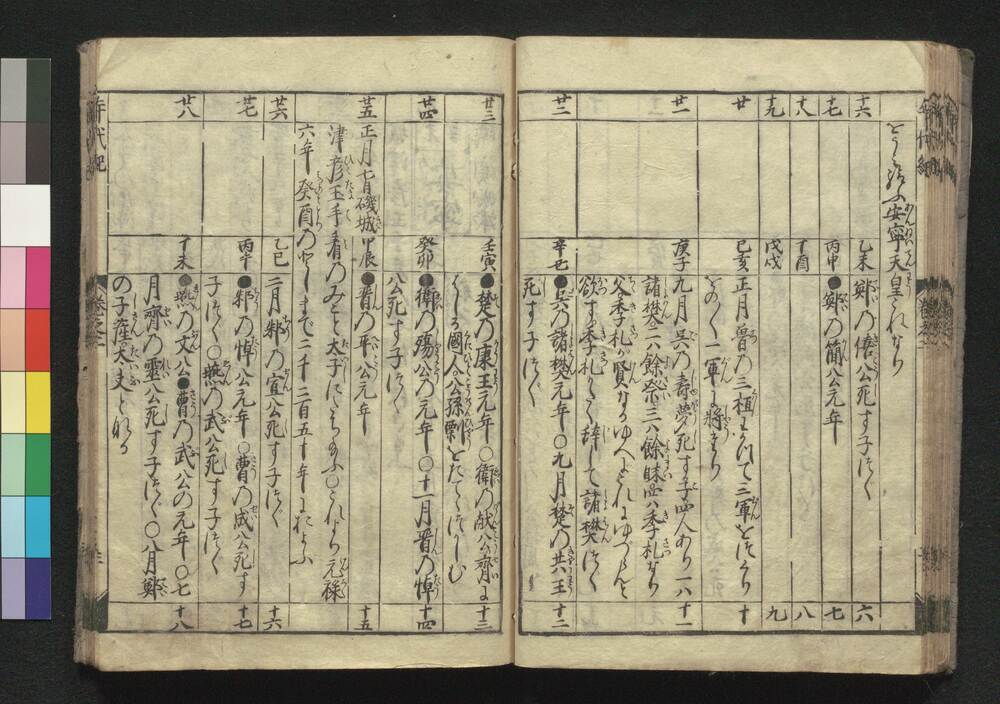 安寧天皇これなり
十六 乙未 鄭の僖公死す子つぐ 六
十七 丙申 ●鄭の簡公元年 七
十八 丁酉 八
十九 戊戌 九
廿 己亥 正月魯の三桓わかつて三軍をつくり 十
をの〱一軍に將たり
廿一 庚子 九月呉の壽夢死す子四人あり一ハ 十一
諸樊二ハ餘祭三ハ餘眛四ハ季札なり
父季札が賢なるゆへにこれにゆづらんと
欲す季札かたく辞して諸樊つぐ
廿二 辛丑 ●呉の諸樊元年〇九月楚の共王 十二
死す子つぐ
廿三 壬寅 ●楚の康王元年〇衛の献公齊に 十三
はしる國人公孫剽をたてつかしむ
廿四 癸卯 ●衛の殤公の元年〇十一月晋の悼 十四
公死す子つぐ
廿五 正月 磯城 甲辰 ●晋の平公元年 十五
津彦玉手看のみこと太子にたちたまふ〇これより元禄
六年癸酉のとしまで二千二百五十年におよぶ
廿六 乙巳 二月邾の宣公死す子つぐ 十六
廿七 丙午 ●邾の悼公元年〇曹の成公死す 十七
子つぐ〇燕の武公死す子つぐ
廿八 丁未 ●燕の文公●曹の武公の元年〇七 十八
月齊の靈公死す子つぐ〇八月鄭
の子産大夫となる
年代紀